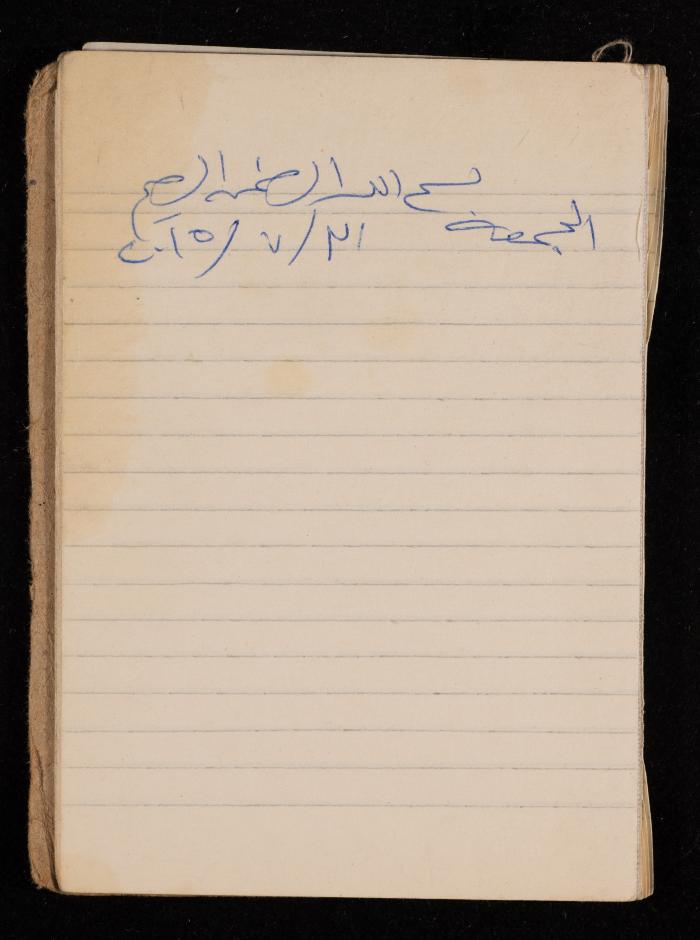 بسم الله الرحمن الرحيم
الجمعة ٣١/٧/٢٠١٥